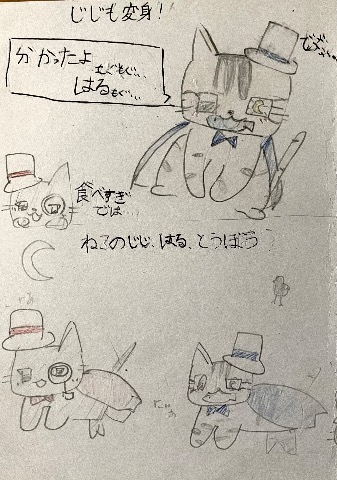 じじも変身!
分かったよ
もぐもぐ…
はる
もぐ…
食べすぎ
では…
ねこのじじ、はる、とうぼう
にゃあ